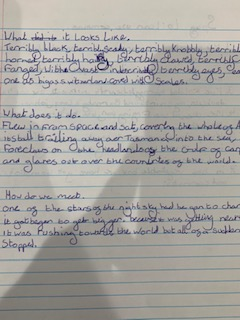 What it looks Like.
Terribly black, terribly scaly, terribly Knobbly, terribl
horned terribly hairy, terribly clawed, terribly
Fanged, With vast terribly eyes,
one as big as switzerland with Scales.
What does it do.
Flew in from space and sat, covering the whole of A
its tail trailing away over Tasmania into the sea
Foreclaws on the headland of the
and glares out over the countries of the world.
How do we meet.
one of the stars of the night sky had be gun to chan
It got began to get bigger. because it was getting near
It was rushing towards the world but all of a sudden
Stopped.